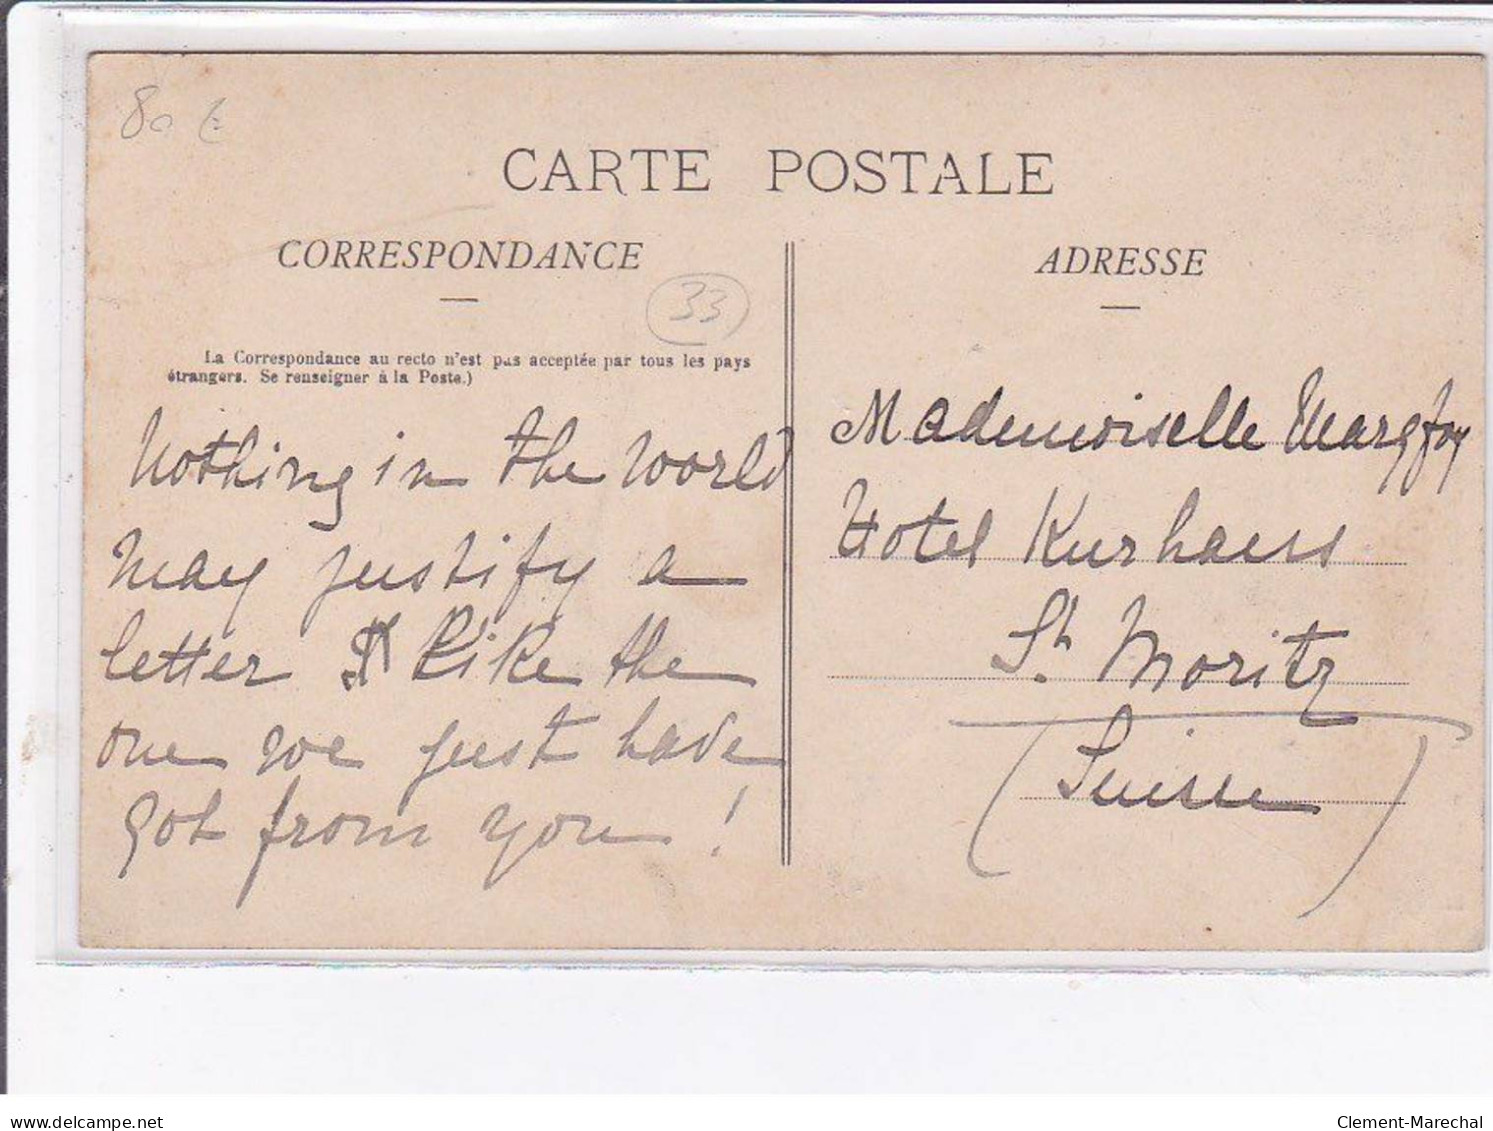 80 €
CARTE POSTALE
CORRESPONDANCE
33
La Correspondance au recto n'est pas acceptée par tous les pays
étrangers. Se renseigner à la Poste.)
Nothing in the world
may justify a
letter like the
one we just have
got from you !
ADRESSE
Mademoiselle
Hotel Kurhaus
St. Moritz
(Suisse)
delcampe.net
Clement-Marechal